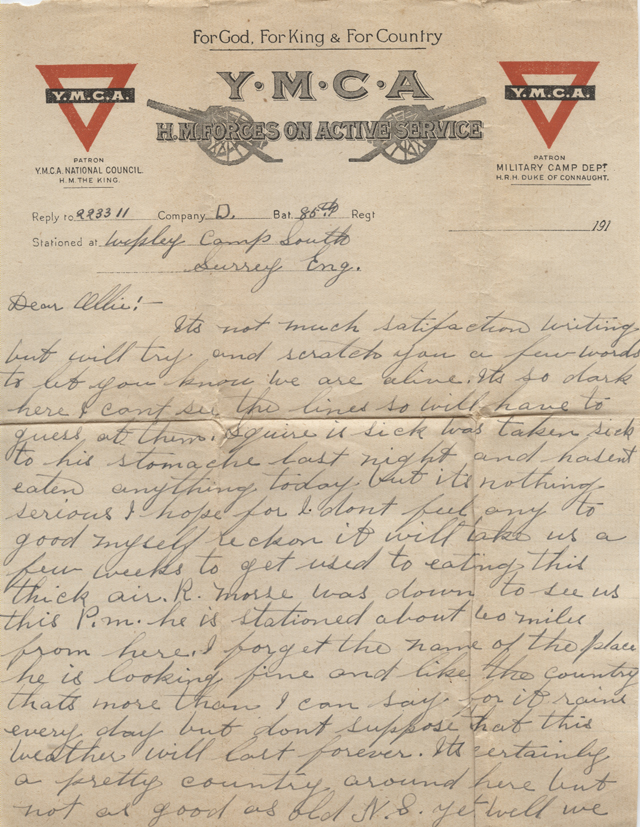 For God, For King & For Country
Y·M·C·A
Y.M.C.A.
Y.M.C.A.
H.M. FORCES ON ACTIVE SERVICE
PATRON
Y.M.C.A. NATIONAL COUNCIL.
H.M. THE KING.
PATRON
MILITARY CAMP DEPT
H.R.H. DUKE OF CONNAUGHT.
Reply to 223311 Company D. Bat. 85th Regt
191
Stationed at Wipley Camp South
Surrey Eng.
Dear Ollie!-
Its not much satifaction writing
but will try and scratch you a few words
to let you know we are alive. Its so dark
here I cant see the lines so will have to
guess at them. Squire is sick was taken sick
to his stomache last night and hasent
eaten anything today but its nothing
serious I hope for I dont feel any to
good myself reckon it will take us a
few weeks to get used to eating this
thick air. R. Morse was down to see us
this P.m. he is stationed about 60 miles
from here. I forget the name of the place
he is looking fine and like the country
thats more than I can say for it rains
every day but dont suppose that this
weather will last forever. Its certainly
a pretty country around here but
not as good as old N.S. yet well we